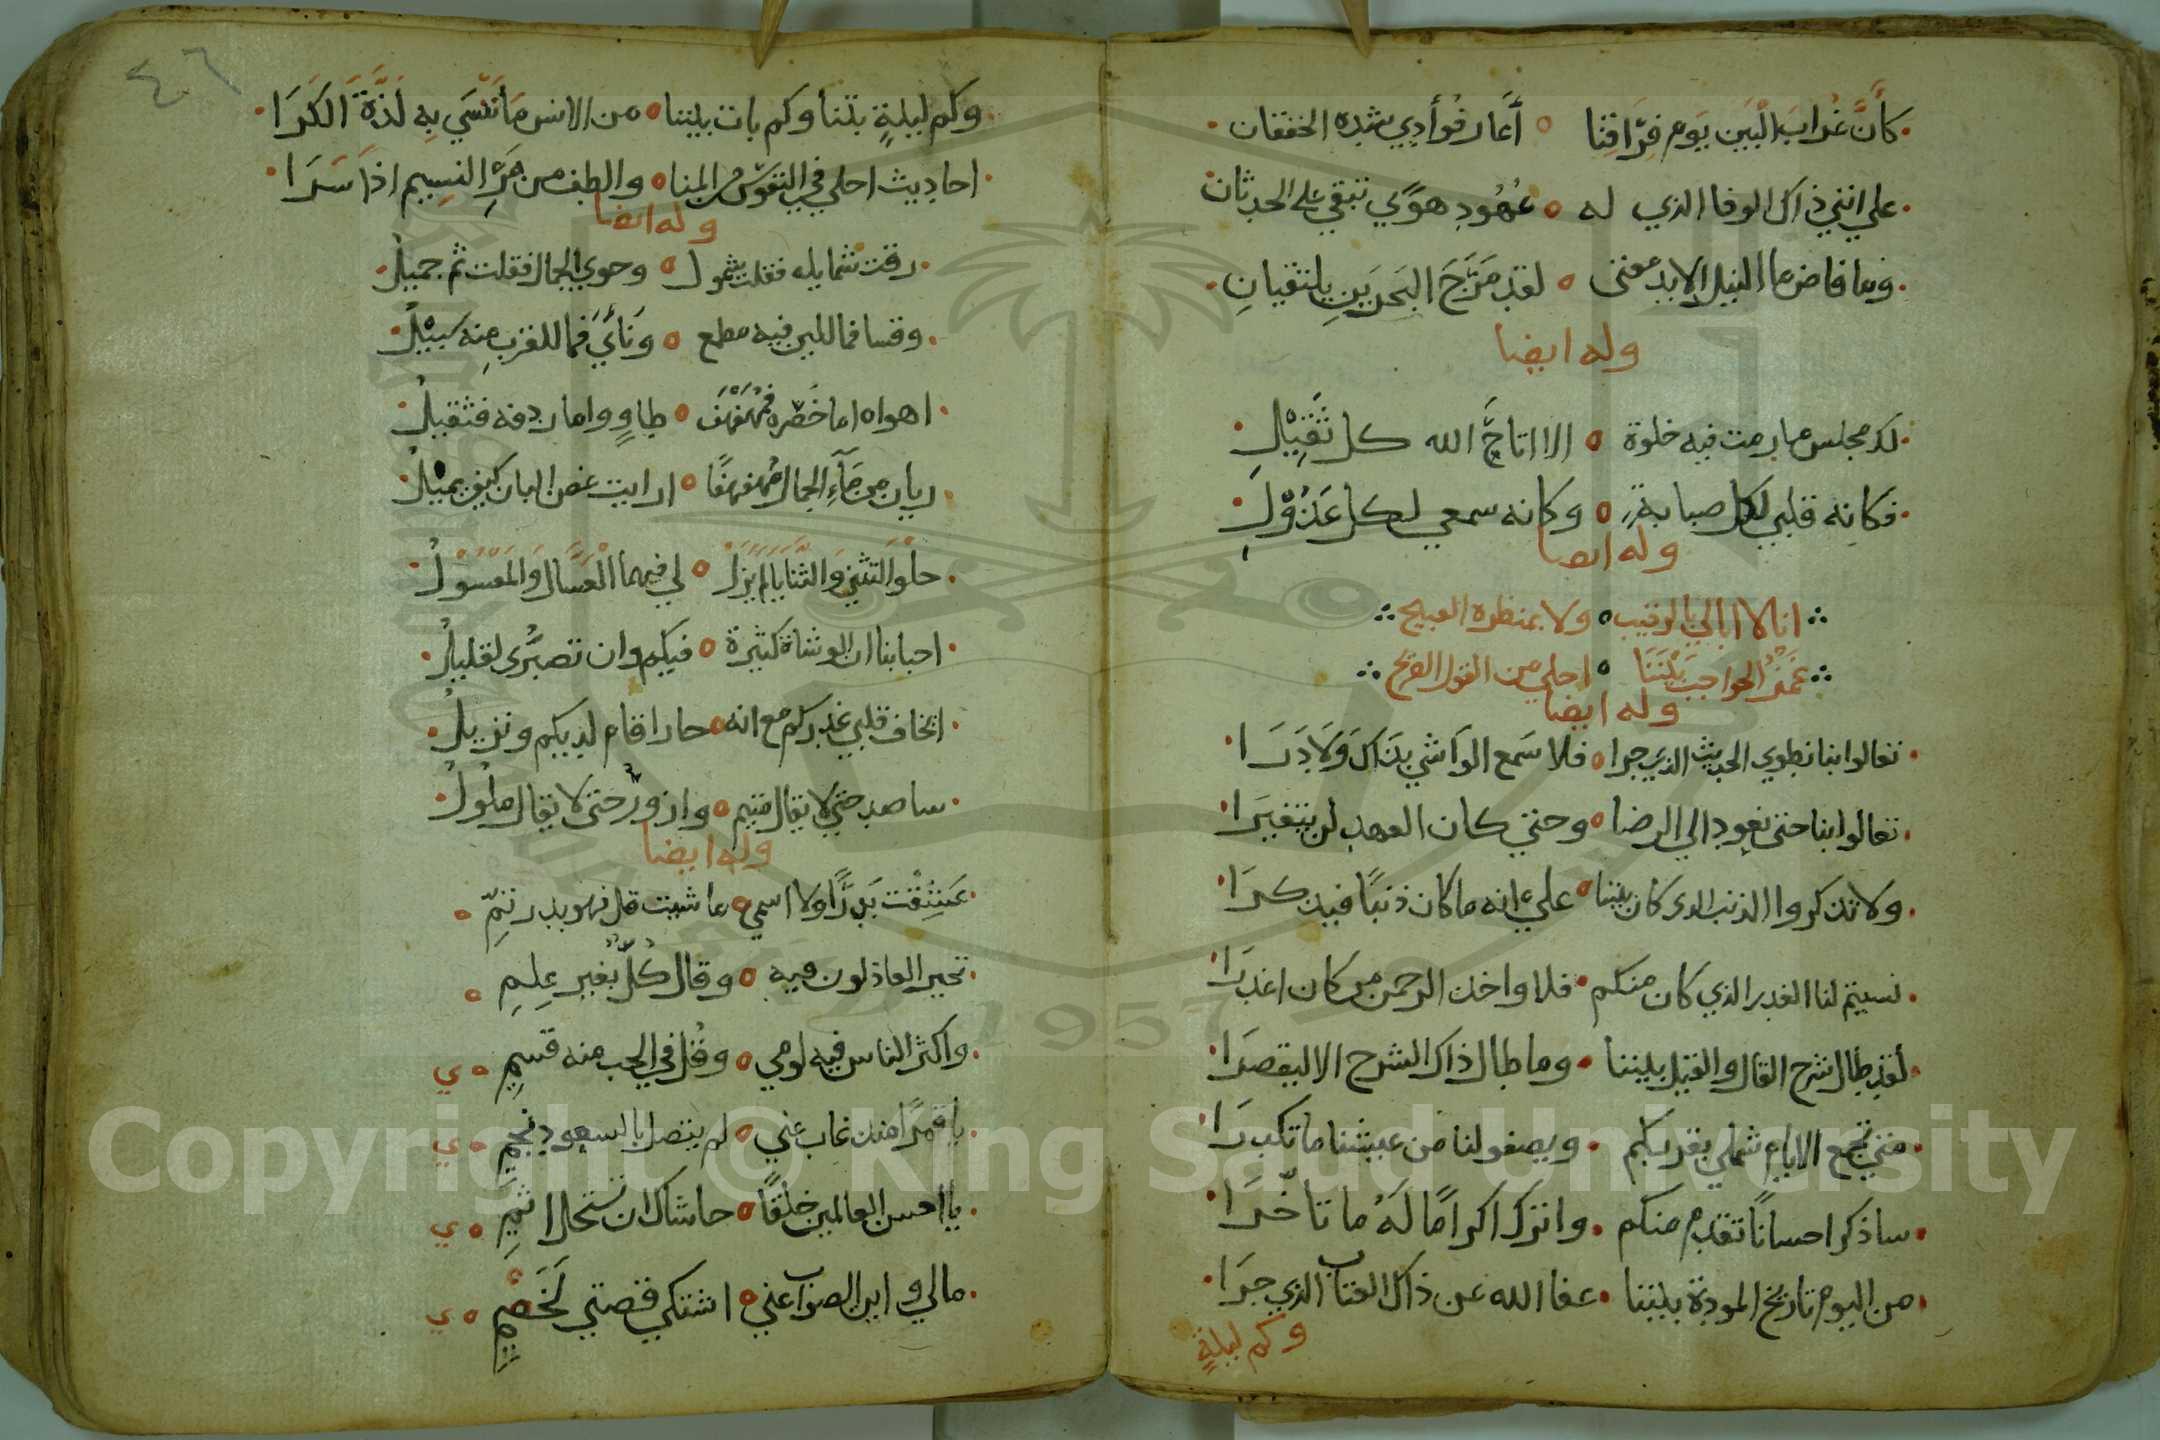 كَأَنَّ غُرابَ البَين يَوم فِرَاقِنا ه أَعَار فُوأدِي شده الخفقان
علي انني ذاك الوفا الذي له ه عُهُودِ هوًي تبقي علي الحدثان
وما فاض ما النيل الا بدمعتى ه لقد مَرَجَ البَحرَينِ يلتقيانِ
وله ايضا
لك مجلس ما رمت فيه خلوة ه الا اتاحَ الله كل ثَقِيْلِ
فكانه قلبي لكل صبابةٍ ه وكانه سمعي لكل عَذُوْلِ
وله ايضا
انا لا ابالي بالرقيب ه ولا بمنظره القبيح
غَمْزُ الحواجب بَيْنَنَا ه احلي من القول الفصيح
وله ايضا
تعالوا بنا نطوي الحديث الذي جرا ه فلا سَمع الوَاشي بذَاكَ وَلَا دَرَا
تعالوا بنا حتى نعود الي الرضا ه وحتي كان العهد لن يتغيرَا
ولا تذكروا الذنب الذي كان بيننا ه علي انه ما كان ذنبًا فيذكرَا
نسيتم لنا الغدر الذي كان منكم ه فلا واخذ الرحمن من كان اغدرَا
لقد طال شرح القال والقيل بيننا ه وما طال ذاك الشرح الا ليقصرَا
متي تجمع الايام شملي بقربكم ه ويصفو لنا من عيشنا ما تكدرَا
ساذكر احسانًا تقدم منكم ه واترك اكرامًا لَهُ ما تاخّرَا
من اليوم تاريخ المودة بيننا ه عفا الله عن ذاك العتاب الذي جرَا
وكم ليلةٍ
٤٦
وكم ليلةٍ بتنا وكم بات بيننا ه من الانس مَا نَنْسَي بِهِ لَذَّةَ الكَرَا
احاديث احلي في النفوس من المنا ه والطف من مَرِّ النسِيم اذَا سَرَا
وله ايضا
رقت شمايله فقلت شمول ه وحوي الجمال فقلت ثم جميلُ
وقسا فما للين فيه مطمع ه وَنَأَيَ فما للقرب مِنه سَبيْلُ
اهواه اما خَصْره فمُهَفهَف ه طاوٍ واما ردفه فثقيلُ
ريان من مَآءِ الجمال مُهفهفًا ه ارايت غصن البان كيف يميْلُ
حلْوُ التثني وَالثَّنَايَا لم يزل ه لي فيهما العَسَّال وَالمَعْسُوْلُ
احبابنا ان الوشاة كثيرة ه فيكم وان تصبُّرى لقليلُ
ايخاف قلبي غدركم مع انه ه جار اقام لديكم ونزيلُ
ساصد حتي لا يقال متيم ه وازور حتى لا يقال ملولُ
وله ايضا
عَشِقْت بَدرًا ولا اسمي ه ما شيت قل فهو بدر تمِّ ه
تحير العاذلون فيه ه وقال كُلٌّ بغير عِلمِ ه
واكثر الناس فيه لومي ه وقُل في الحب منه قسمِ ه ي
يا قمرًا منذ غاب عني ه لم يتصل بالسعود نجمِ ه ي
يا احسن العالمين خلقًا ه حاشاك ان تستحل اثمِ ه ي
مالي واين الصواب عني ه اشتكي قصتي لخَصمِ ه ي
Copyright © King Saud University
1957